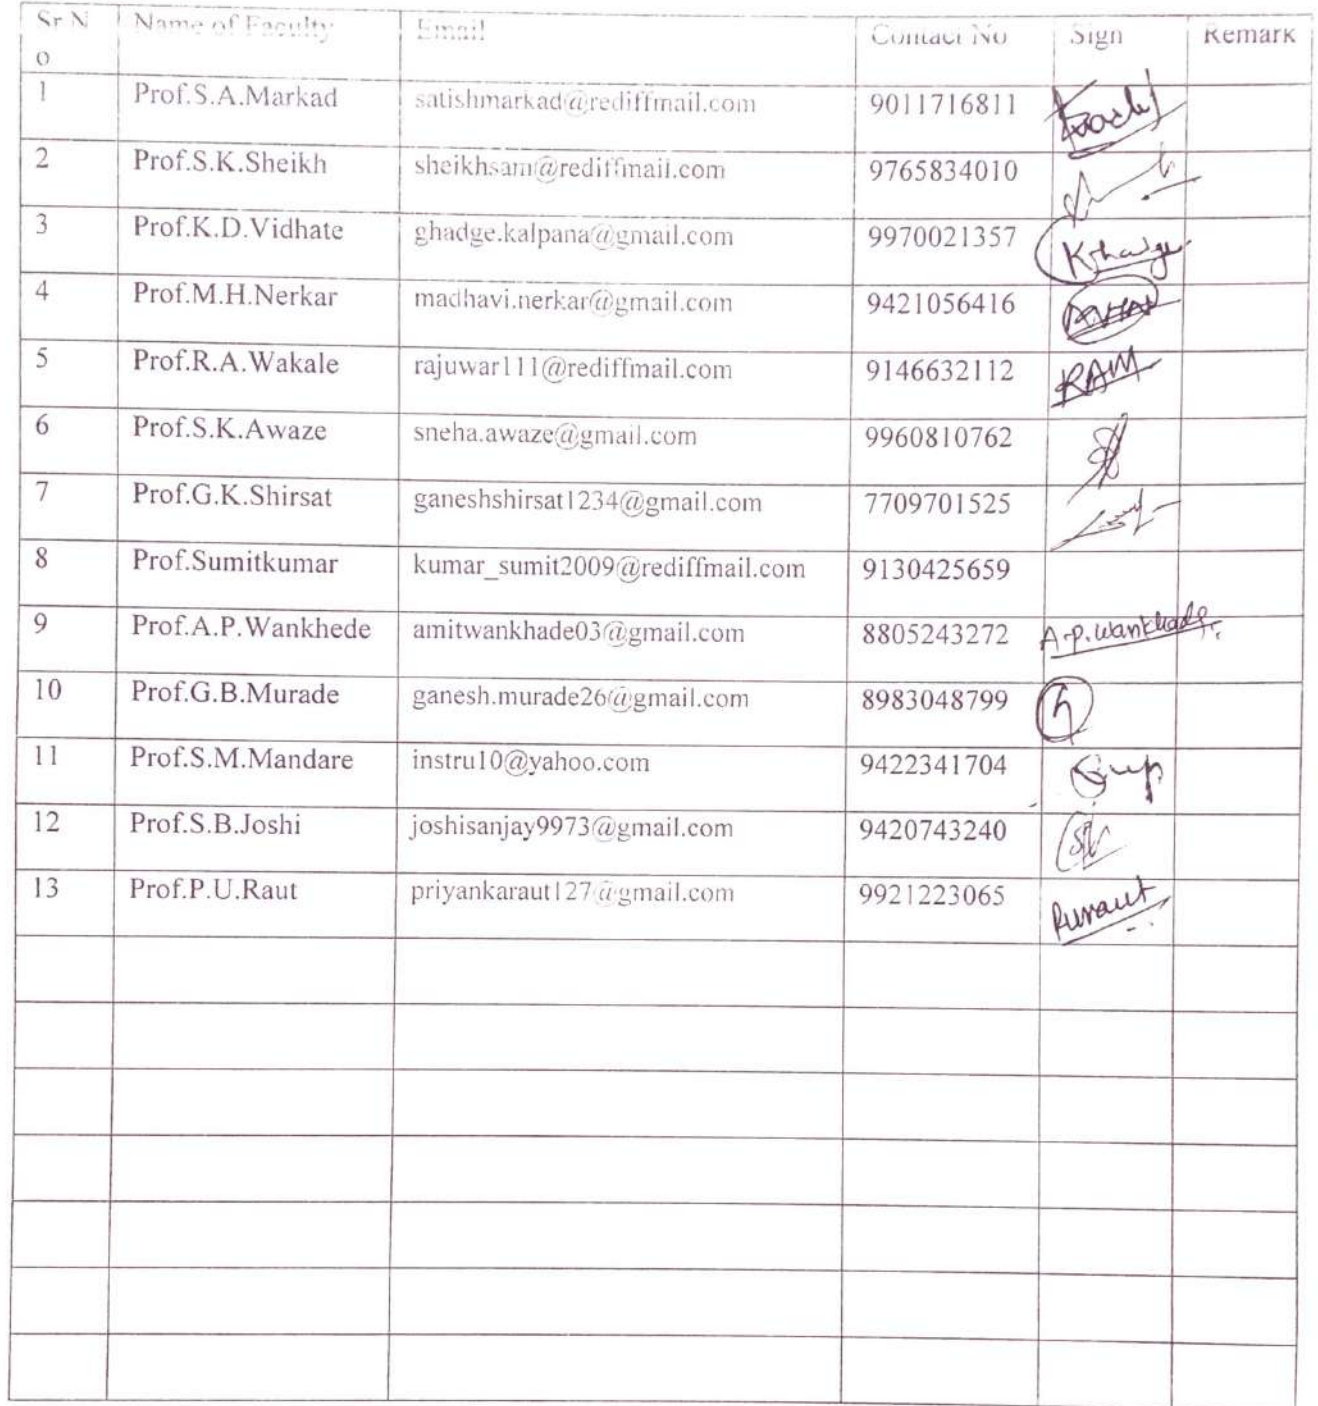 Sr.N Name of Faculty Email Contact No Sign Remark
o
1 Prof.S.A.Markad satishmarkad@rediffmail.com 9011716811
2 Prof.S.K.Sheikh sheikhsam@rediffmail.com 9765834010
3 Prof.K.D.Vidhate ghadge.kalpana@gmail.com 9970021357
4 Prof.M.H.Nerkar madhavi.nerkar@gmail.com 9421056416
5 Prof.R.A.Wakale rajuwar111@rediffmail.com 9146632112 RAM
6 Prof.S.K.Awaze sneha.awaze@gmail.com 9960810762
7 Prof.G.K.Shirsat ganeshshirsat1234@gmail.com 7709701525
8 Prof.Sumitkumar kumar_sumit2009@rediffmail.com 9130425659
9 Prof.A.P.Wankhede amitwankhade03@gmail.com 8805243272 A.P.Wankhade
10 Prof.G.B.Murade ganesh.murade26@gmail.com 8983048799
11 Prof.S.M.Mandare instru10@yahoo.com 9422341704
12 Prof.S.B.Joshi joshisanjay9973@gmail.com 9420743240
13 Prof.P.U.Raut priyankaraut127@gmail.com 9921223065 Puraut